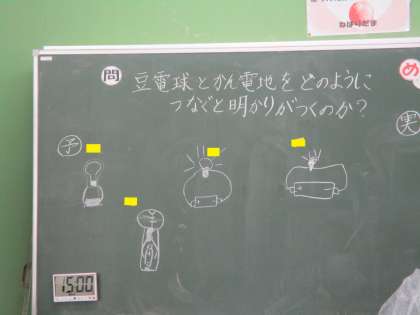 ねばりだま
問
豆電球とかん電地をどのように
つなぐと明かりがつくのか?
め
実
予
15:00